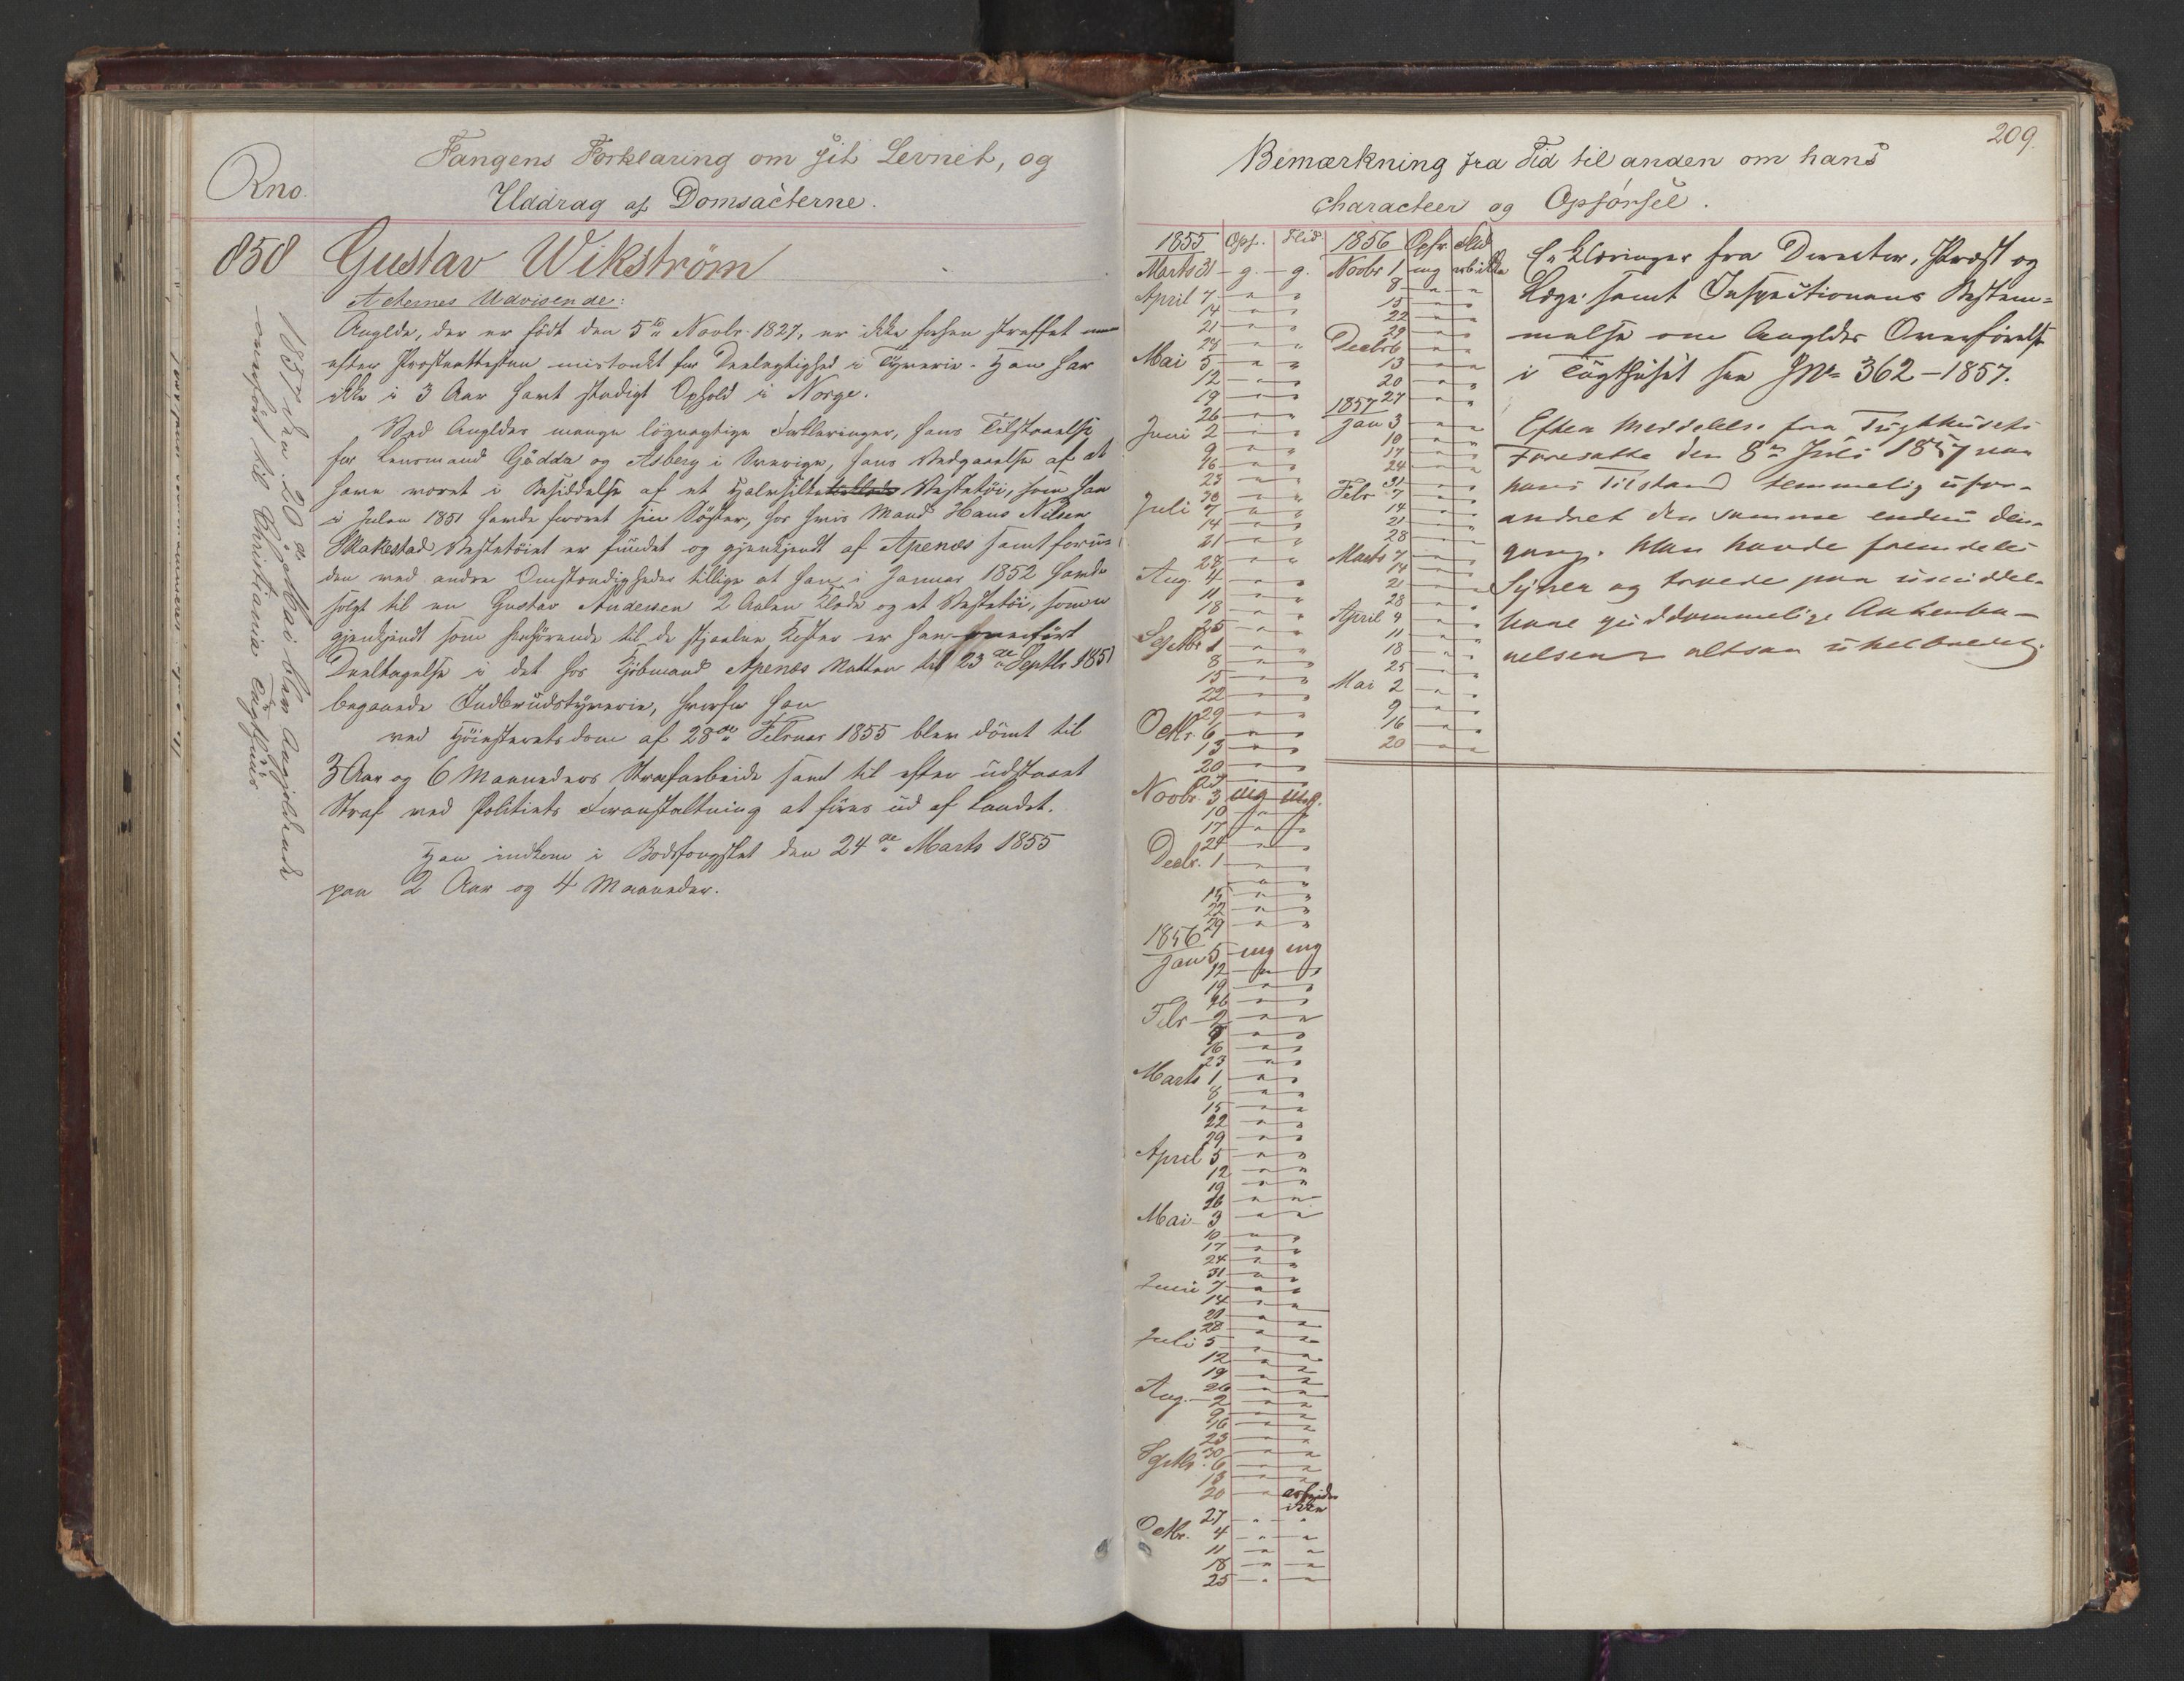 Rno.
Fangens Forklaring om sit Levnet, og
Uddrag af Domsacterne.
850
Gustav Wikström
Acternes Udvisende:
Angldn, der er født den 5te Novbr. 1827, er ikke forhen straffet men
efter Præsteattesten mistænkt for Deelagtighed i Tyverie. Han har
ikke i 3 Aar havt stadigt Ophold i Norge.
Ved Angldes mange løgnagtige Forklaringer, hans Tilstaaelse
for Lensmand Gödda og Asberg i Sverige, hans Vedgaaelse af at
have været i Besiddelse af et Vestetøi, som han
i Julen 1851 havde foræret sin Søster, hos hvis Mand Hans Nilsen
Skakestad Vestetøiet er fundet og gjenkjendt af Apenæs samt foruden
den ved andre Omstændigheder tillige at han i Januar 1852 havde
solgt til en Gustav Andersen 2 Alen Klæde og et Vestetøi, som er
gjenkjendt som henhørende til de stjaalne Koster er han overført
Deeltagelse i det hos Kjøbmand Apenæs Natten til 23de Septbr 1851
begaaede Indbrudstyverie, hvorfor han
ved Høiesteretsdom af 28de Februar 1855 blev dømt til
3 Aar og 6 Maaneders Strafarbeide samt til efter udstaaet
Straf ved Politiets Foranstaltning at føres ud af Landet.
Han indkom i Bodsfængslet den 24de Marts 1855
paa 2 Aar og 4 Maaneder.
1857 den 20de Mai blev Angjeldende
overført til Christiania Tugthuus
209.
Bemærkning fra Tid til anden om hans
Characteer og Opførsel.
1855 Opf. Flid
Marts 31 - g. - g.
April 7 " "
14 " "
21 " "
28 " "
Mai 5 " "
12 " "
19 " "
26 " "
Juni 2 " "
9 " "
16 " "
23 " "
30 " "
Juli 7 " "
14 " "
21 " "
28 " "
Aug. 4 " "
11 " "
18 " "
25 " "
Septbr 1 " "
8 " "
15 " "
22 " "
29 " "
Octbr. 6 " "
13 " "
20 " "
27 " "
Novbr. 3 mg mg.
10 " "
17 " "
24 " "
Decbr. 1 " "
" "
15 " "
22 " "
29 " "
1856
Jan 5 mg mg
12 " "
19 " "
26 " "
Febr 2 " "
9 " "
16 " "
23 " "
Marts 1 " "
8 " "
15 " "
22 " "
29 " "
April 5 " "
12 " "
19 " "
26 " "
Mai 3 " "
10 " "
17 " "
24 " "
31 " "
Juni 7 " "
14 " "
21 " "
28 " "
Juli 5 " "
12 " "
19 " "
26 " "
Aug. 2 " "
9 " "
16 " "
23 " "
30 " "
Septbr. 6 " "
13 " "
20 " arbeider
ikke
27 " "
Octbr. 4 " "
11 " "
18 " "
25 " "
1856 Opfr Flid
Novbr 1 mg arb: ikke
8 " "
15 " "
22 " "
29 " "
Decbr 6 " "
13 " "
20 " "
27 " "
1857
Jan 3 " "
10 " "
17 " "
24 " "
31 " "
Febr 7 " "
14 " "
21 " "
28 " "
Marts 7 " "
14 " "
21 " "
28 " "
April 4 " "
11 " "
18 " "
25 " "
Mai 2 " "
9 " "
16 " "
20 " "
Erklæringer fra Director, Præst og
Læge samt Inspectionens Bestem=
melse om Angldes Overførelse
i Tugthuset see JNo 362-1857.
Efter Meddelelse fra Tugthusets
Foresatte den 8de Juli 1857 var
hans Tilstand temmelig ufor-
andret den samme endnu den-
gang. Han havde fremdeles
Syner og troede paa umiddel-
bare guddommelige Aabenba-
relser altsaa uhelbredet.